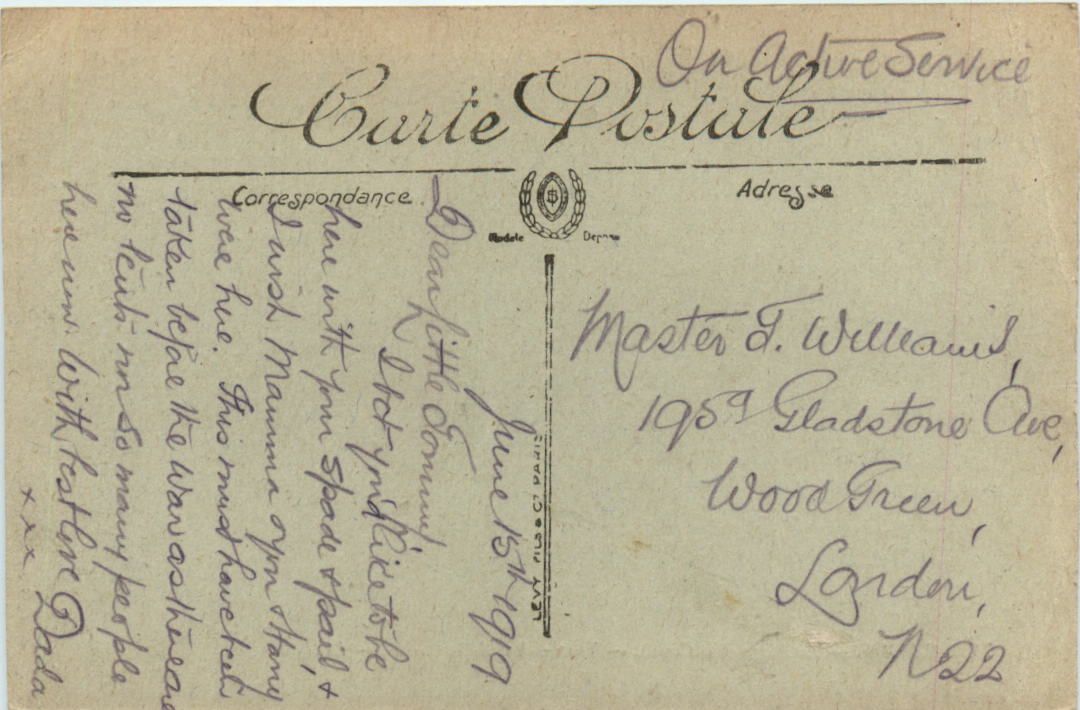 On Active Service
Carte Postale
Correspondance
Adresse
Modèle Déposé
LEVY FILS & Cie PARIS
June 15th 1919
Dear little Tommy
I bet you'd like to be
here with your spade & pail, &
I wish Mamma & you & Harry
were here. This must have been
taken before the War as there are
no tents nor so many people
here now. With best love Dada
x x x
Master T. Williams,
195a Gladstone Ave,
Wood Green,
London,
N22